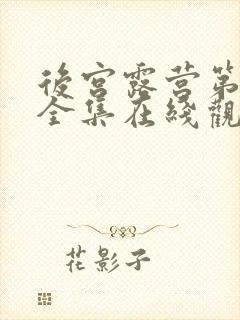 後宮露营第
全集在綫觀
花影子